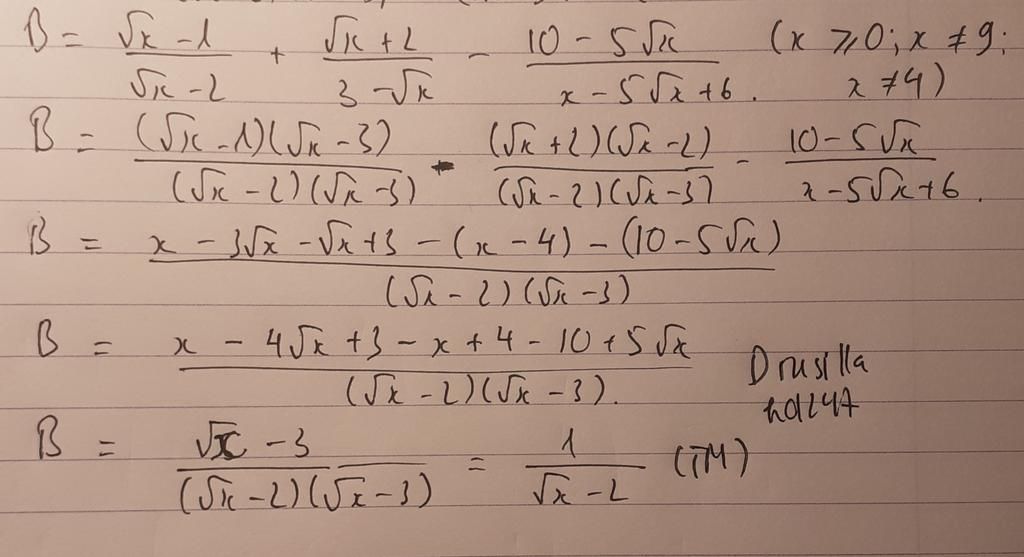 B = (√x - 1)/(√x - 2) + (√x + 2)/(3 - √x) - (10 - 5√x)/(x - 5√x + 6). (x ≥ 0; x ≠ 9; x ≠ 4)
B = ((√x - 1)(√x - 3))/((√x - 2)(√x - 3)) - ((√x + 2)(√x - 2))/((√x - 2)(√x - 3)) - (10 - 5√x)/(x - 5√x + 6).
B = (x - 3√x - √x + 3 - (x - 4) - (10 - 5√x))/((√x - 2)(√x - 3))
B = (x - 4√x + 3 - x + 4 - 10 + 5√x)/((√x - 2)(√x - 3)).
Drusilla
B = (√x - 3)/((√x - 2)(√x - 3)) = 1/(√x - 2) (TM)